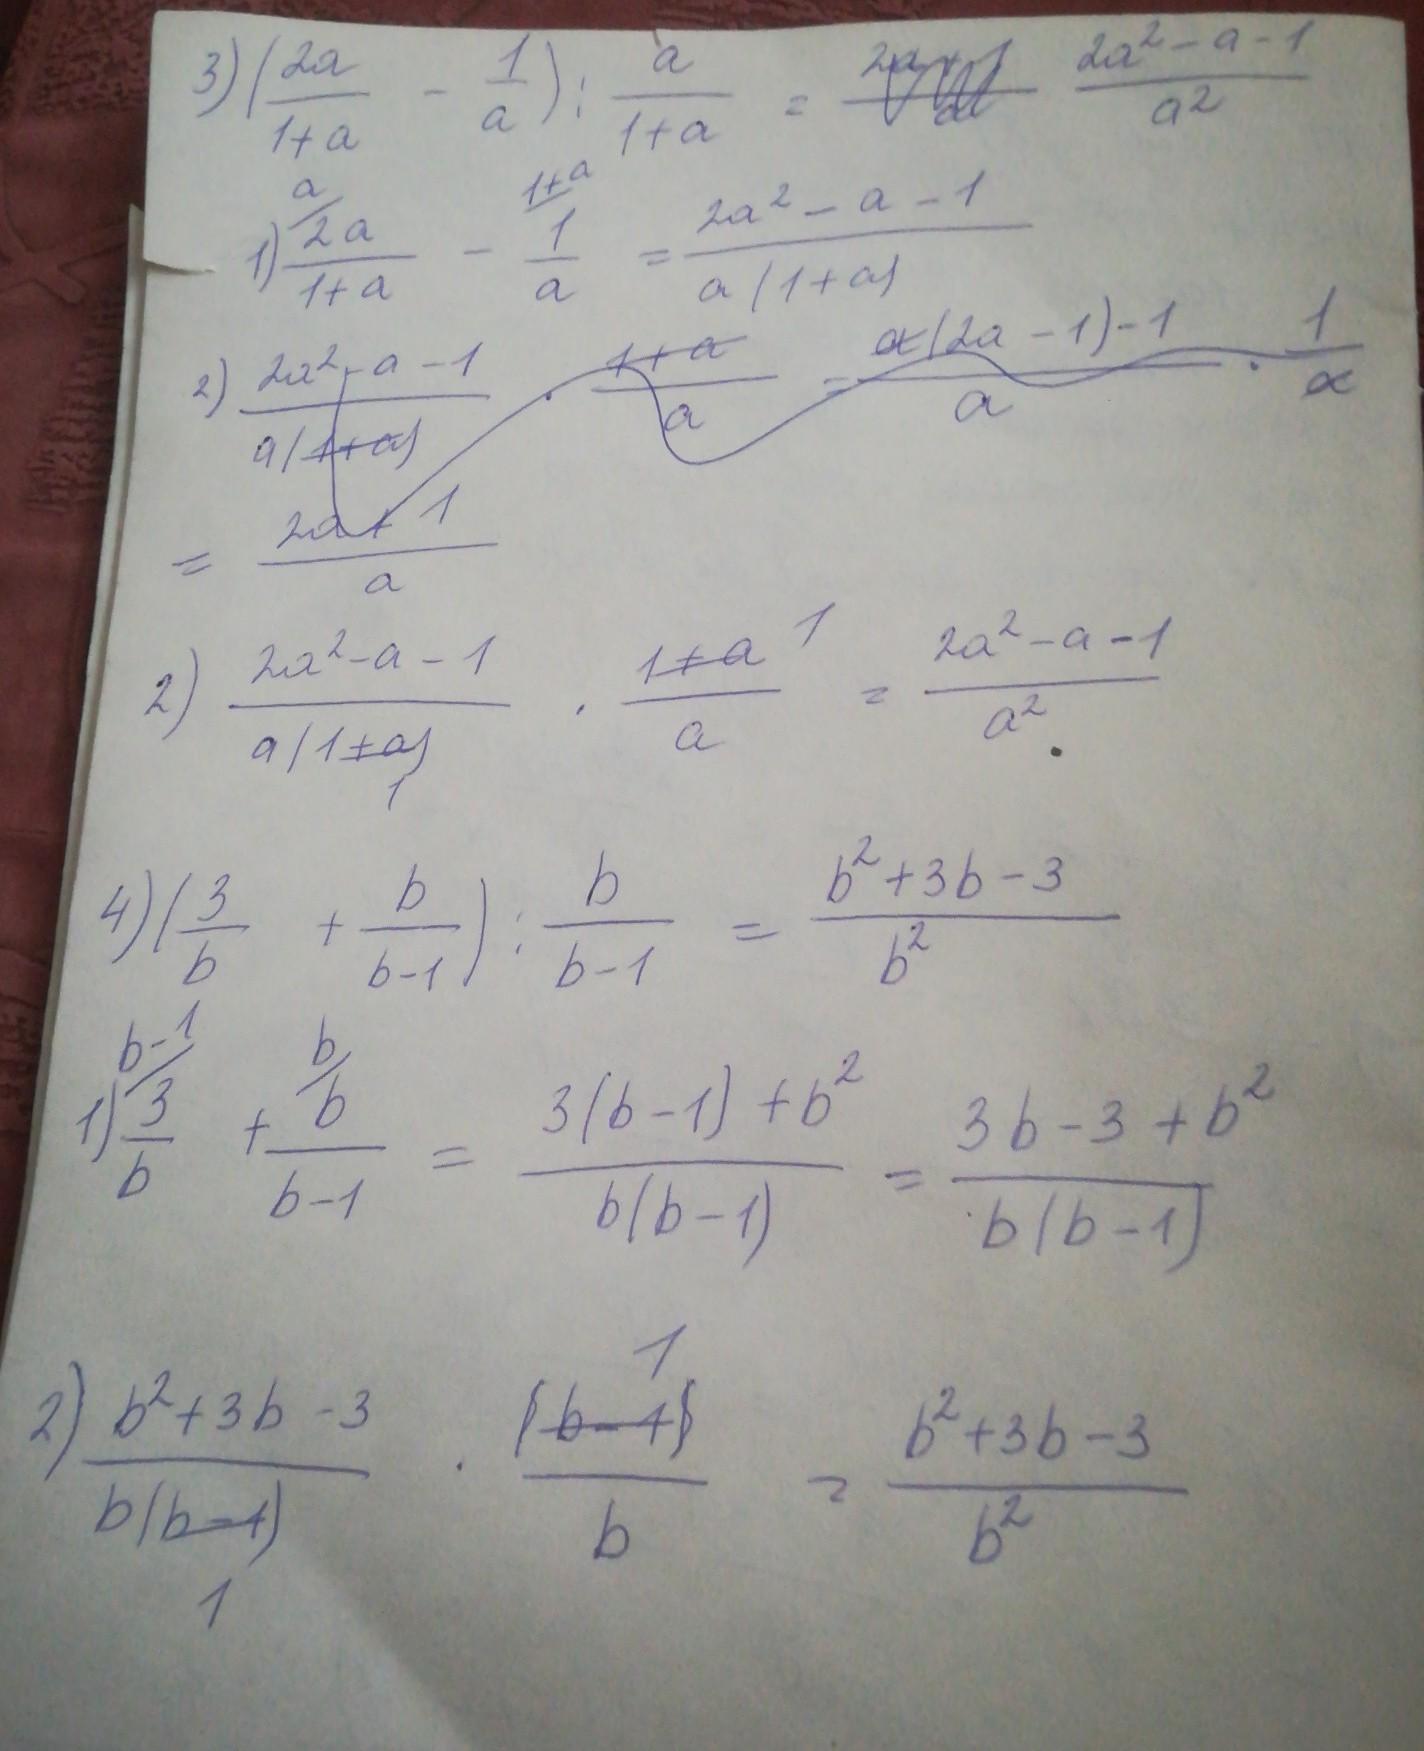 3) (2a/(1+a) - 1/a) : a/(1+a) = (2a²-a-1)/a²
1) a/ 2a/(1+a) - 1+a/ 1/a = (2a²-a-1)/(a(1+a))
2) (2a²-a-1)/(a(1+a)) · (1+a)/a = (a(2a-1)-1)/a · 1/a
= (2a+1)/a
2) (2a²-a-1)/(a(1+a)) 1 · (1+a)/a 1 = (2a²-a-1)/a²
4) (3/b + b/(b-1)) : b/(b-1) = (b²+3b-3)/b²
1) b-1/ 3/b + b/ b/(b-1) = (3(b-1)+b²)/(b(b-1)) = (3b-3+b²)/(b(b-1))
2) (b²+3b-3)/(b(b-1)) 1 · (b-1)/b 1 = (b²+3b-3)/b²